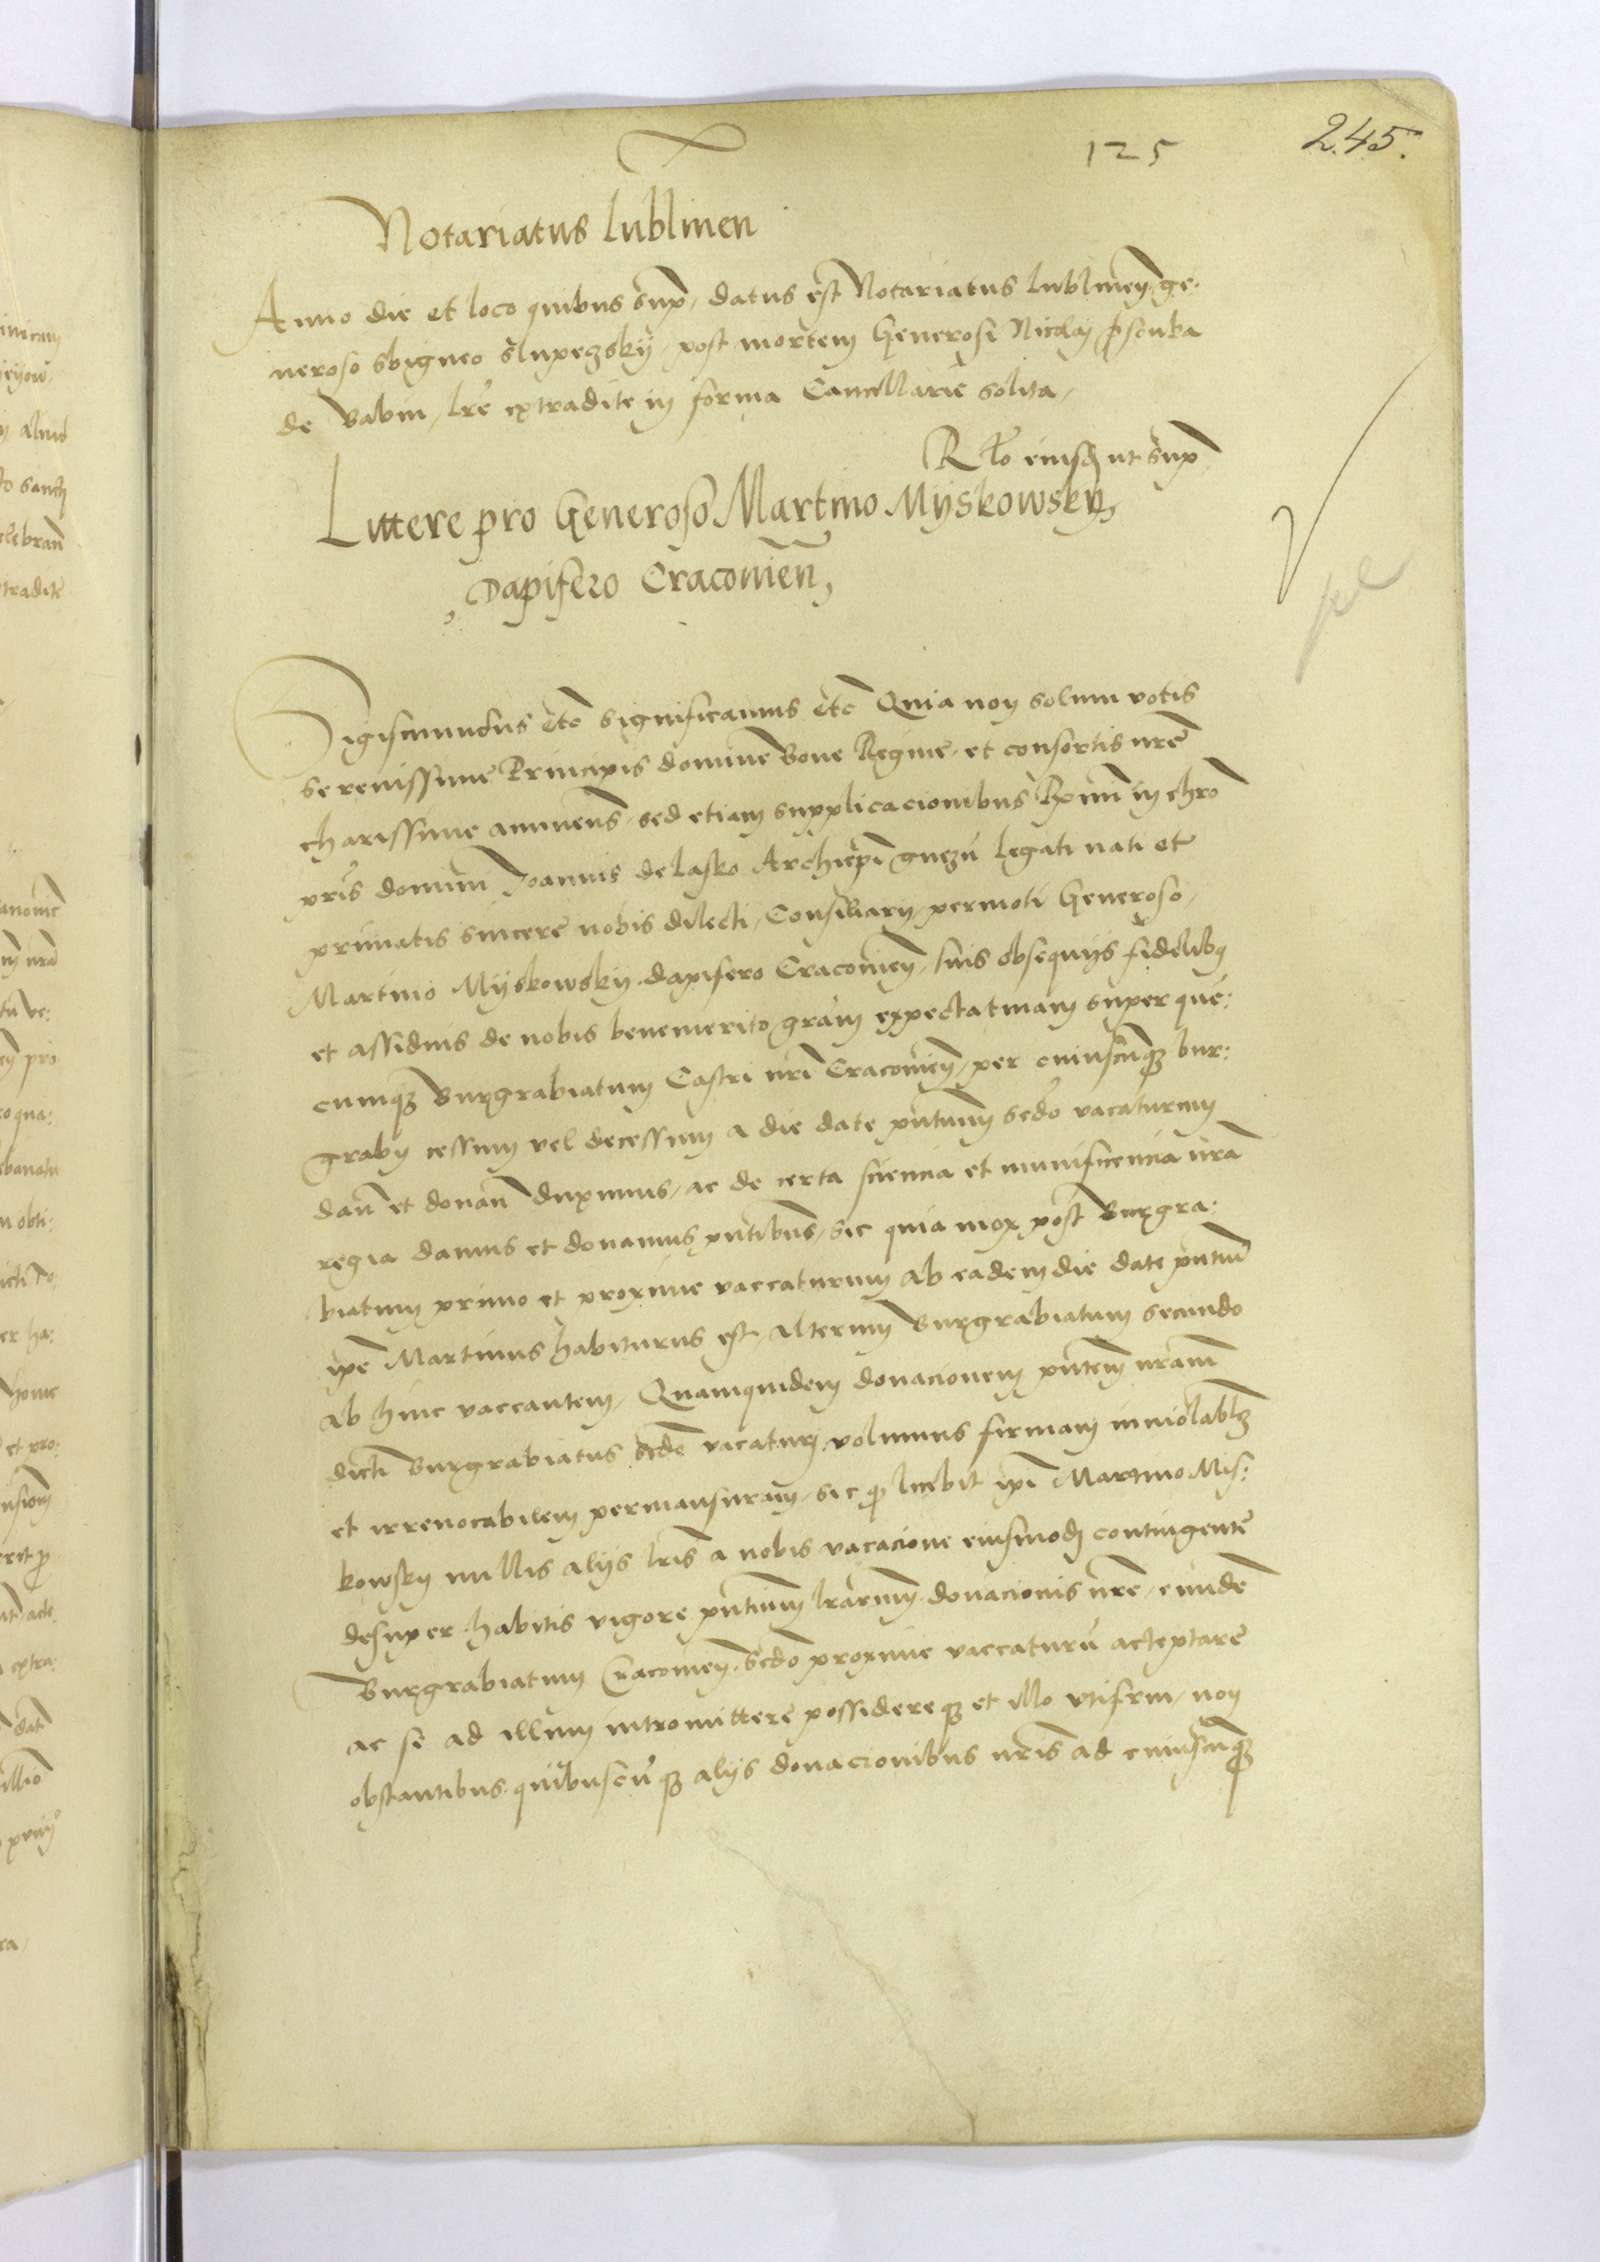 125 245.
Notariatus lublinen
Anno die et loco quibus supra, datus est Notariatus lublinen ge.
neroso sbigneo Slupeczsky, post mortem Generosi Nicolaj psonka
de babin, lre extradite in forma Cancellarie solita,
Rlo eiusdem ut supra,
Littere pro Generoso Martino Myskowsky,
Dapifero Cracovien,
Sigismundus etc significamus etc Quia non solum votis
serenissime Principis domine bone Regine, et consortis nre
charissime annuens, sed etiam supplicacionibus Rmi in chro
pris domini Joannis de lasko Archiepi gnezn legati nati et
primatis sincere nobis dilecti, Consiliarij, permoti Generoso,
Martino Myskowsky dapifero Cracovien, suis obsequijs fidelibus
et assiduis de nobis benemerito, gram expectativam super que:
cumque burgrabiatum Castri nri Cracovien, per cuiuscumque bur:
grabij cessum vel decessum a die date pntium secdo vacaturum
dand et donand duximus, ac de certa sciencia et munificencia nra
regia damus et donamus pntibus, sic quia mox post burgra:
biatum primo et proxime vaccaturum ab eadem die date pntium
ipe Martinus habiturus est, alterum burgrabiatum secundo
ab hinc vaccantem, Quamquidem donacionem pntem nram
dicti burgrabiatus secdo vacaturj, volumus firmam inviolablem
et irrevocabilem permansuram, sic quod licebit ipi Martino Mis:
kowsky nullis alijs lris a nobis vacacione eiusmodj contingente
desuper habitis vigore pntium lrarum donacionis nre, eundem
burgrabiatum Cracovien, secdo proxime vaccaturu acceptare
ac se ad illum intromittere possidereque et illo utifrui, non
obstantibus quibuscumque alijs donacionibus nris ad cuiuscumque